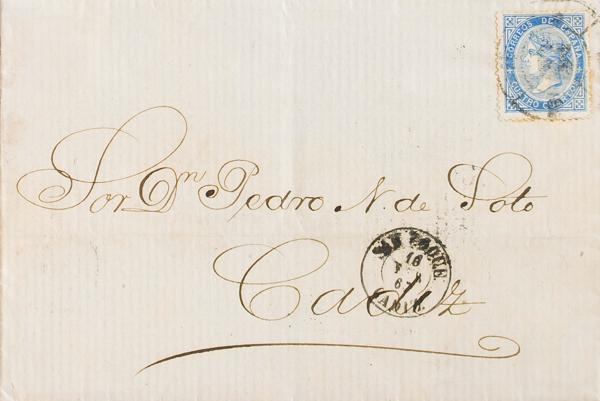 CORREOS DE ESPAÑA
CUATRO CUARTOS
Sor. Dn Pedro N. de Soto
SAN ROQUE
16
Cadiz